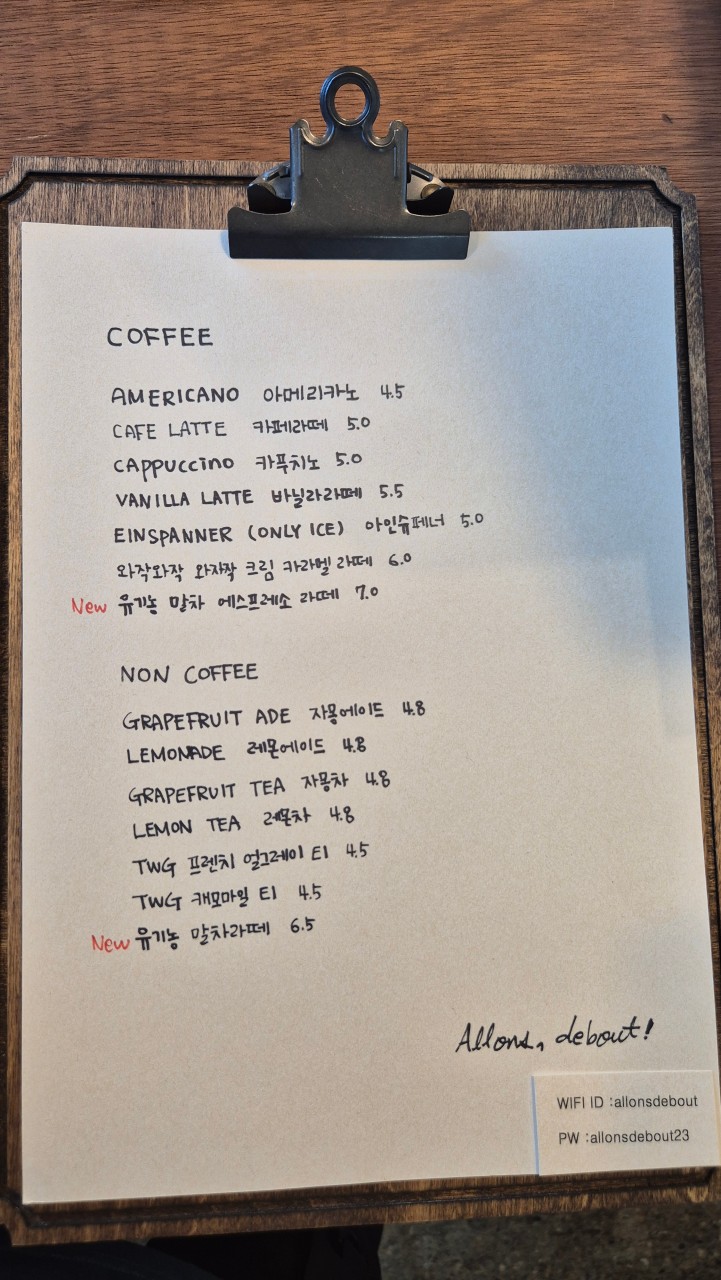 COFFEE
AMERICANO 아메리카노 4.5
CAFE LATTE 카페라떼 5.0
CAPPUCCINO 카푸치노 5.0
VANILLA LATTE 바닐라라떼 5.5
EINSPANNER (ONLY ICE) 아인슈페너 5.0
와작와작 와자작 크림 카라멜 라떼 6.0
New 유기농 말차 에스프레소 라떼 7.0
NON COFFEE
GRAPEFRUIT ADE 자몽에이드 4.8
LEMONADE 레몬에이드 4.8
GRAPEFRUIT TEA 자몽차 4.8
LEMON TEA 레몬차 4.8
TWG 프렌치 얼그레이 티 4.5
TWG 캐모마일 티 4.5
New 유기농 말차라떼 6.5
Allons, debout!
WIFI ID :allonsdebout
PW :allonsdebout23